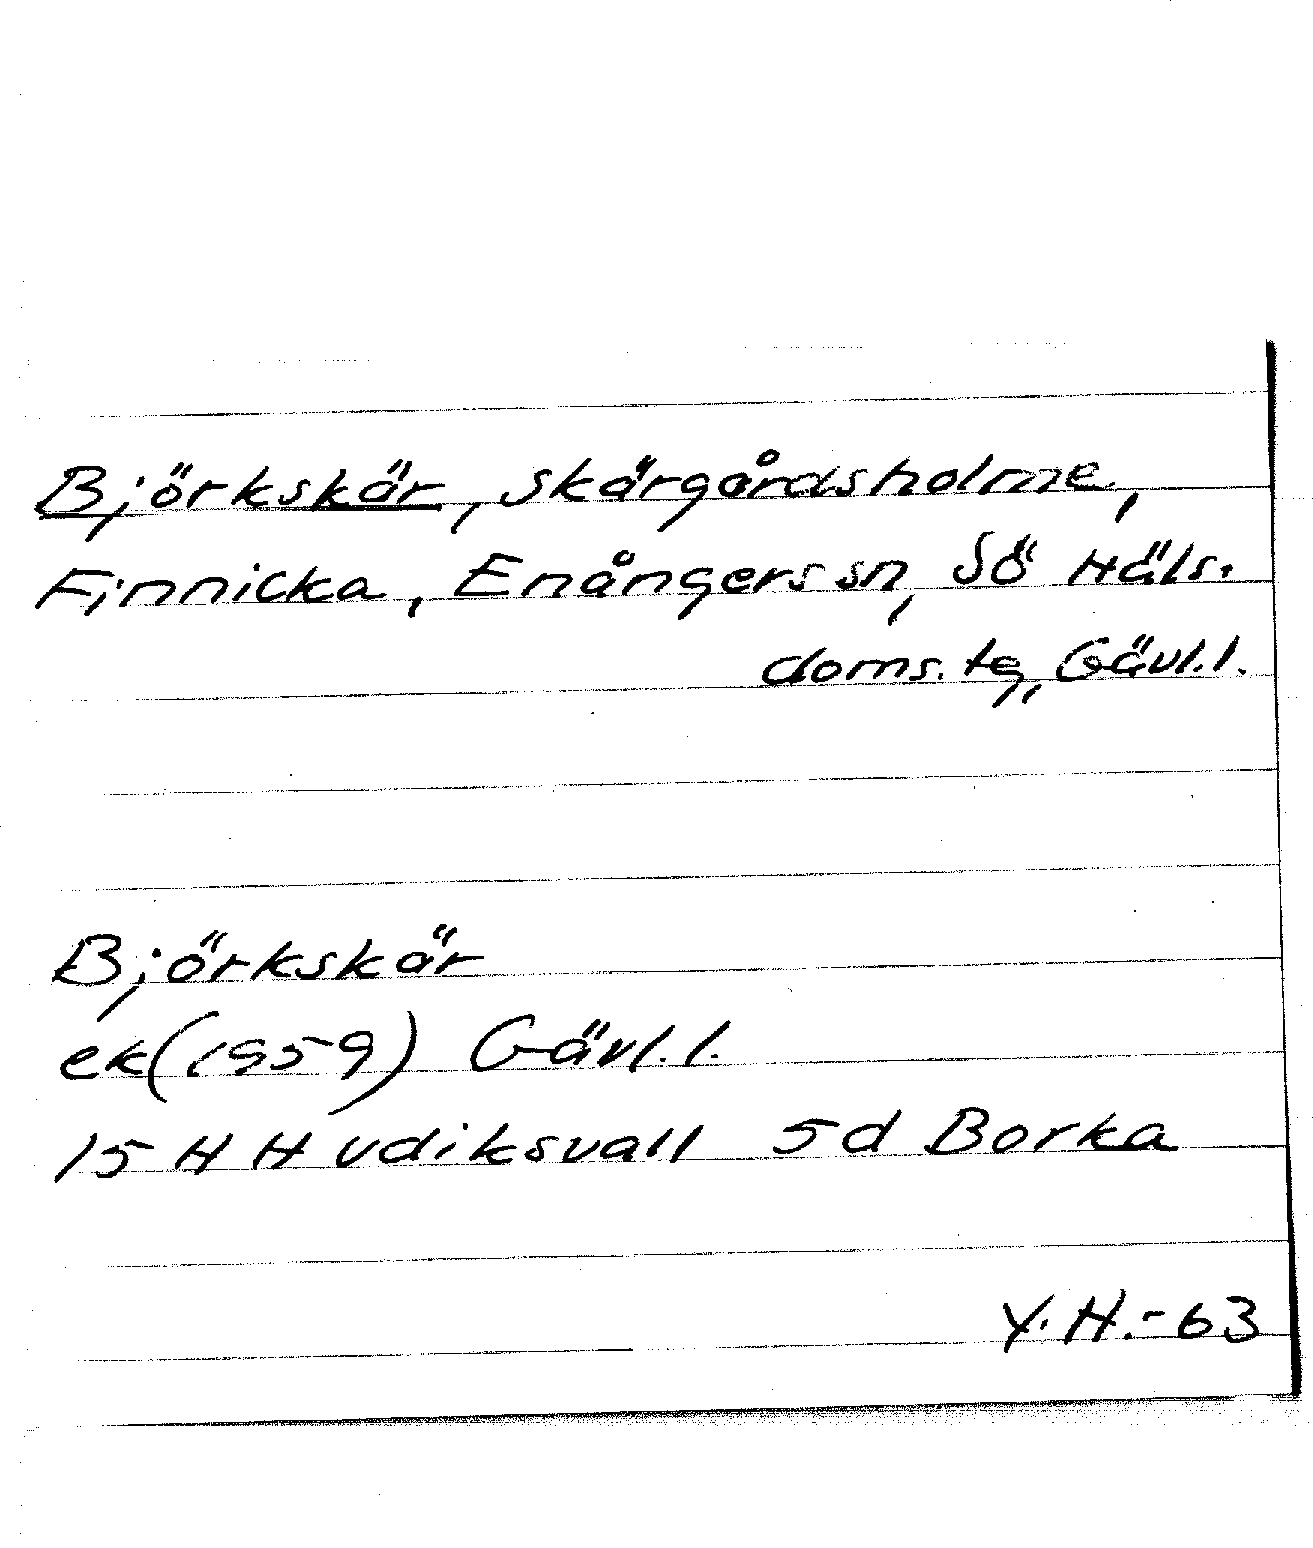 Björkskär, skärgårdsholme,
Finnicka, Enångers sn, Sö Häls.
doms. tg, Gävl. l.
Björkskär
ek (1959) Gävl. l.
15 H Hudiksvall 5d Borka
Y. H. - 63